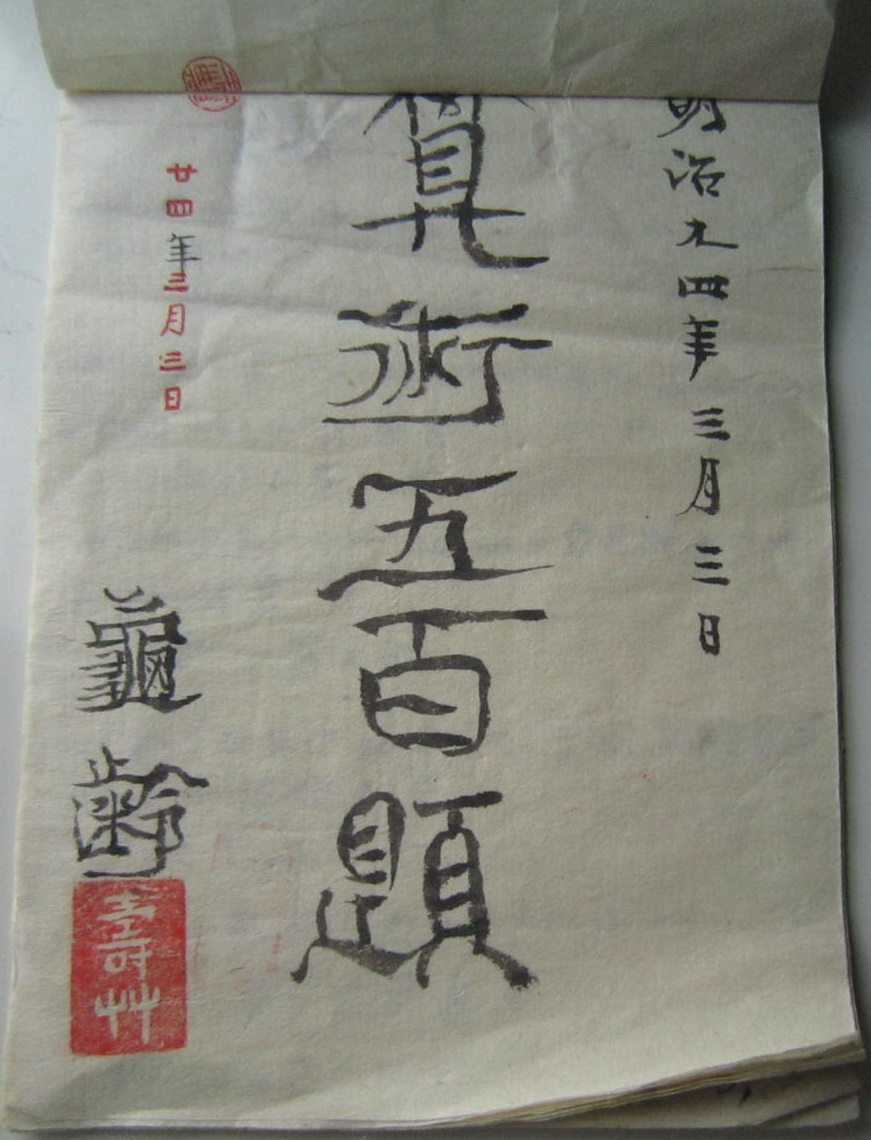 明治四年三月三日
算術五百題
廿四年三月三日
龜齡
壽艸